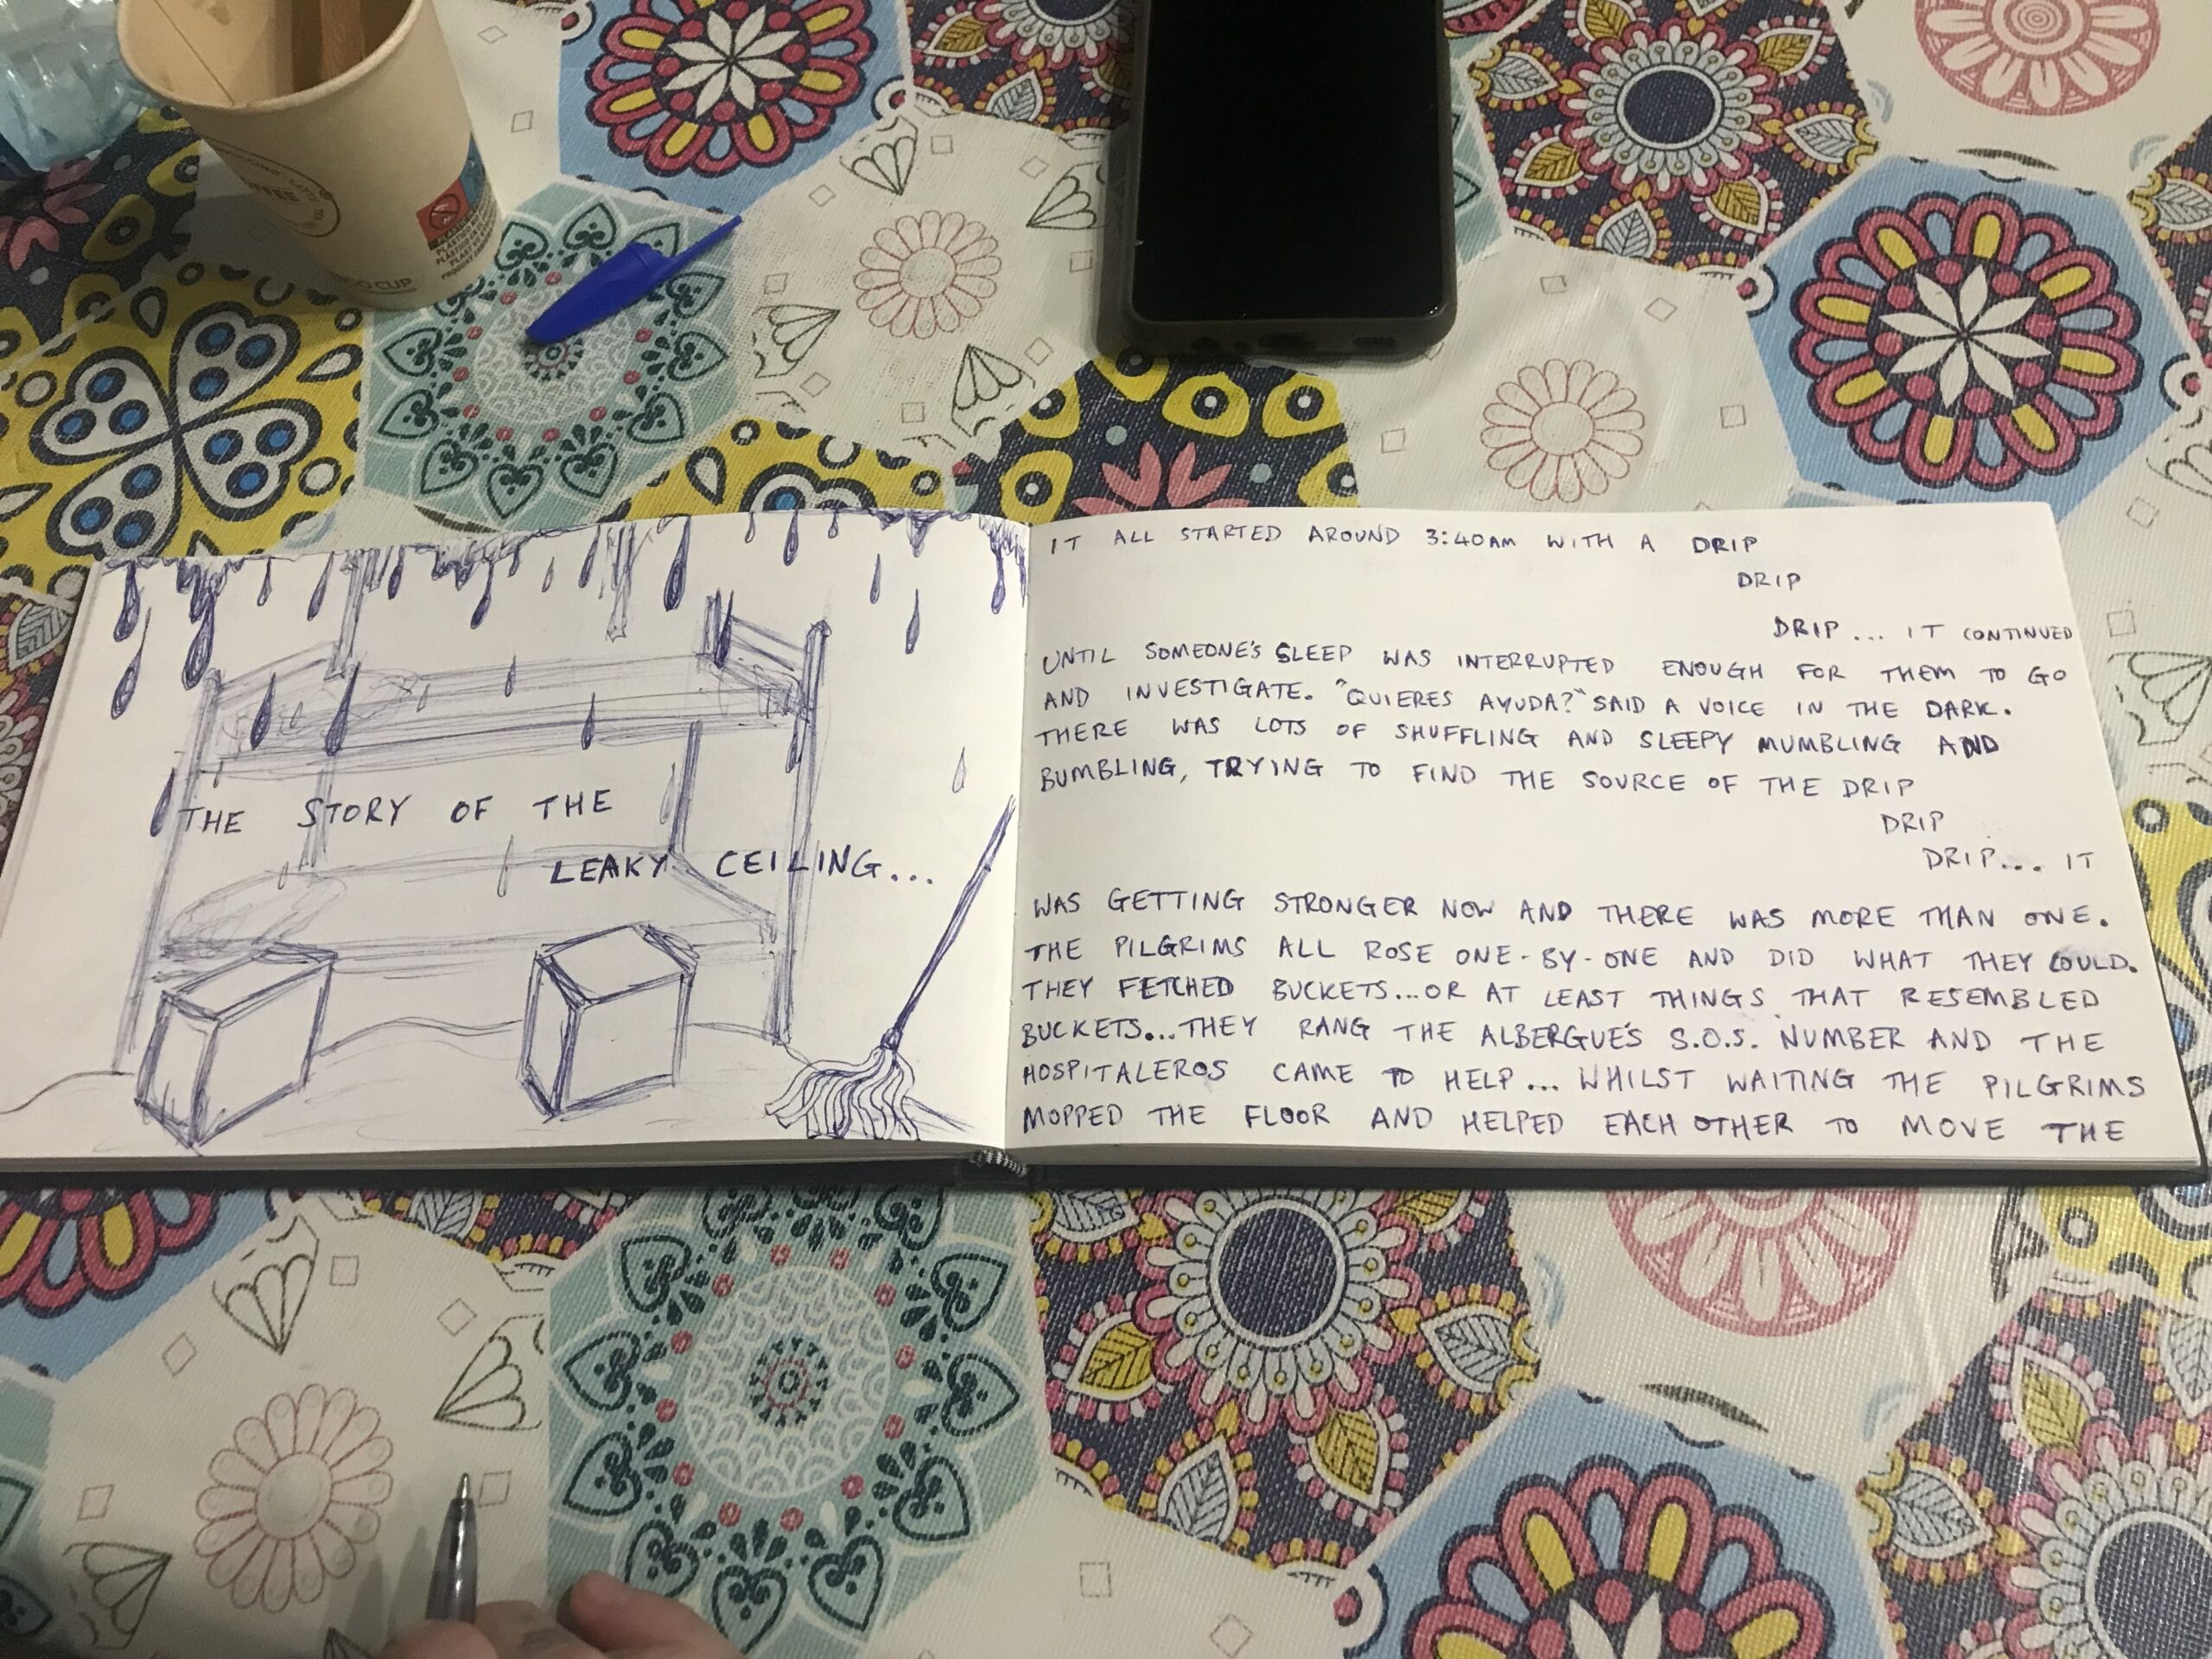 THE STORY OF THE
LEAKY CEILING...
IT ALL STARTED AROUND 3:40AM WITH A DRIP
DRIP
DRIP... IT CONTINUED
UNTIL SOMEONE'S SLEEP WAS INTERRUPTED ENOUGH FOR THEM TO GO
AND INVESTIGATE. "QUIERES AYUDA?" SAID A VOICE IN THE DARK.
THERE WAS LOTS OF SHUFFLING AND SLEEPY MUMBLING AND
BUMBLING, TRYING TO FIND THE SOURCE OF THE DRIP
DRIP
DRIP... IT
WAS GETTING STRONGER NOW AND THERE WAS MORE THAN ONE.
THE PILGRIMS ALL ROSE ONE-BY-ONE AND DID WHAT THEY COULD.
THEY FETCHED BUCKETS...OR AT LEAST THINGS THAT RESEMBLED
BUCKETS...THEY RANG THE ALBERGUE'S S.O.S. NUMBER AND THE
HOSPITALEROS CAME TO HELP... WHILST WAITING THE PILGRIMS
MOPPED THE FLOOR AND HELPED EACH OTHER TO MOVE THE